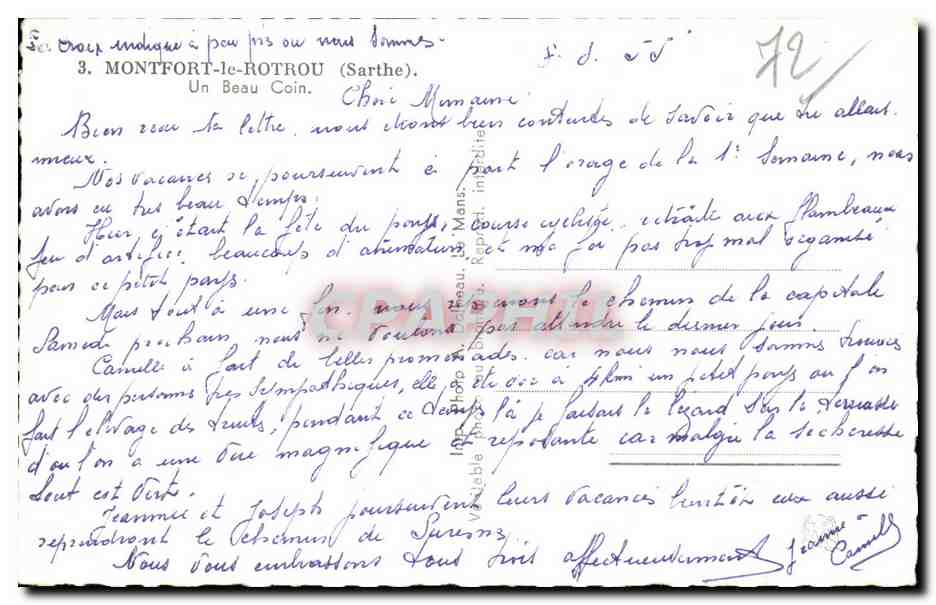 croix indique à peu près ou nous sommes.
72
3. MONTFORT-le-ROTROU (Sarthe).
Un Beau Coin.
Chère Mamaine
Bien reçu ta lettre, nous étions bien contentes de savoir que tu allais
mieux.
Nos vacances se poursuivent à part l'orage de la 1e Semaine, nous
avons eu très beau temps.
Hier, c'était la fête du pays, course cycliste, retraite aux flambeaux
feu d'artifice, beaucoups d'animation et ma foi pas trop mal organisé
pour ce petit pays.
Mais tout à une fin, nous reprenons le chemin de la capitale
Samedi prochain, nous ne voulons pas attendre le dernier jour.
Camille à fait de belles promenades car nous nous sommes trouvés
avec des personnes très sympathiques, elle à été voir à 4 kmi un petit pays ou l'on
fait l'élevage des truites, pendant ce temps là je faisais le lézard sur la terrasse
d'ou l'on a une vue magnifique et reposante car malgré la sécheresse
tout est vert.
Jeannine et Joseph poursuivent leurs vacances bientôt eux aussi
reprendront le chemin de Suresnes.
Nous vous embrassons tous trois affectueusement
Jeanne
Camille
Imp. Photo A. Dolbeau, Le Mans.
Véritable photo au bromure. Reprod. interdite
CPAPHIL